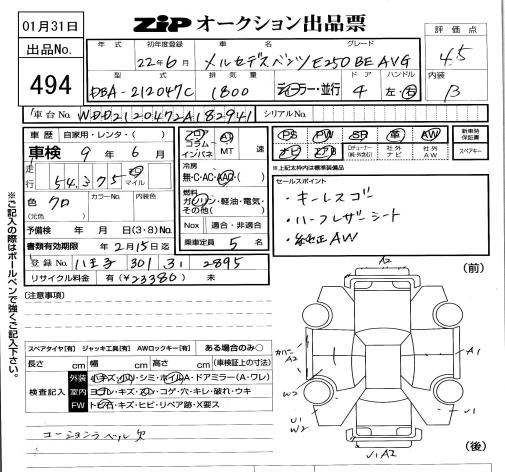 01月31日
ZIP オークション出品票
出品No.
494
評価点
4.5
内装
B
年式 初年度登録 車名 グレード
22年6月 メルセデスベンツE250 BE AVG
型式 排気量 ドア ハンドル
DBA-212047C 1800 ディーラー・並行 4 左・右
車台No. WDD2120472A182941 シリアルNo.
車歴 自家用・レンタ・( )
車検 9年6月
走行 54,375 km マイル
色 クロ カラーNo. 内装色
(元色)
予備検 年 月 日(3・8)No.
書類有効期限 年2月15日迄
登録No. 八王子 301 す 2895
リサイクル料金 有(¥23380) 未
フロア AT
コラム MT 速
インパネ
冷房
無・C・AC・AAC・( )
燃料
ガソリン・軽油・電気・
その他( )
Nox 適合・非適合
乗車定員 5 名
PS PW SR 革 AW 新車時保証書
ナビ エアB Dチューナー(純・外含む) 社外ナビ 社外AW スペアキー
※上記太枠内は標準装備品
セールスポイント
・キーレスゴー
・ハーフレザーシート
・純正AW
※ご記入の際はボールペンで強くご記入下さい。
〔注意事項〕
スペアタイヤ〔有〕 ジャッキ工具〔有〕 AWロックキー〔有〕 ある場合のみ○
長さ cm 幅 cm 高さ cm (車検証上の寸法)
検査記入
外装 小キズ・凹・シミ・ホイルA・ドアミラー(A・ワレ)
室内 ヨゴレ・キズ・スレ・コゲ・穴・キレ・破れ・ウキ
FW トビ石・キズ・ヒビ・リペア跡・X要ス
コーションラベル欠
(前)
A2
カバー
A2
A1
W2
U1
W2
U1 A2
(後)